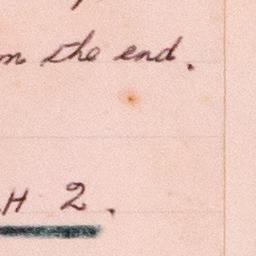 the end.
H 2.